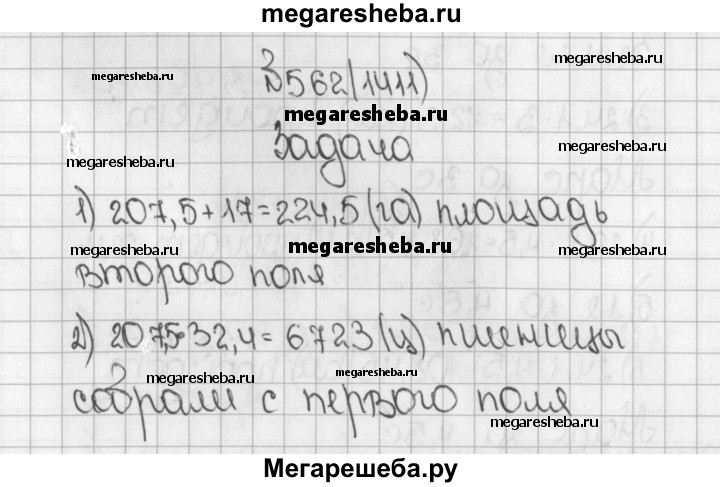 megaresheba.ru
megaresheba.ru
№562(1411)
megaresheba.ru
megaresheba.ru
Задача
megaresheba.ru
megaresheba.ru
1) 207,5+17=224,5(га) площадь
megaresheba.ru
megaresheba.ru
megaresheba.ru
второго поля
2) 207,5·32,4=6723(ц) пшеницы
megaresheba.ru
megaresheba.ru
собрали с первого поля
megaresheba.ru
Мегарешеба.ру